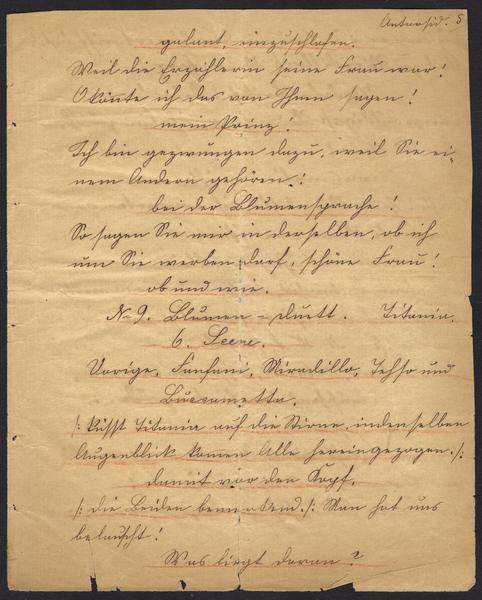 Antarsid. 5
galant, einzuschlafen.
Weil die Erzählerin seine Frau war!
O könnte ich das von Ihnen sagen!
mein Prinz!
Ich bin gezwungen dazu, weil Sie ei-
nem Andern gehören!
bei der Blumensprache!
So sagen Sie mir in derselben, ob ich
um Sie werben darf, schöne Frau!
ob und wie.
No 9. Blumen = Duett. Titania.
6. Scene.
Vorige, Fanfani, Miradillo, und
Buccametta.
/: küsst Titania auf die Stirne, in denselben
Augenblick komen Alle hereingezogen. :/
damit vor den Kopf.
/: die Beiden bemerkend. :/ Man hat uns
belauscht!
Was liegt daran?